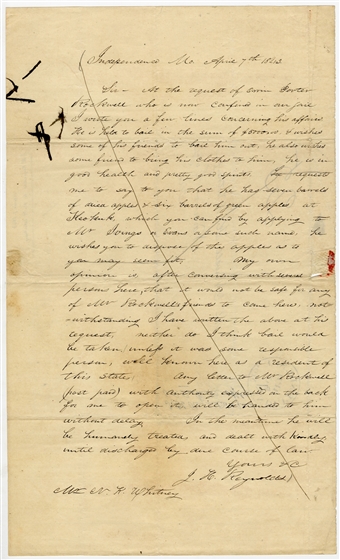 Independence Mo. April 7th 1843
Sir – At the request of Orrin Porter
Rockwell who is now confined in our jail
I write you a few lines concerning his affairs
He is held to bail in the sum of $5000.00 & wishes
some of his friends to bail him out. he also wishes
some friend to bring his clothes to him, he is in
good health and pretty good spirits. he requests
me to say to you that he has seven barrels
of dried apples & six barrels of green apples, at
Keokuk, which you can find by applying to
Mr or Evans or some such name, he
wishes you to dispose of the apples as to
you may seem fit. My own
opinion is, after conversing with several
persons here, that it would not be safe for any
of Mr Rockwells friends to come here, not-
-withstanding I have written the above at his
request, neither do I think bail would
be taken, unless it was some responsible
person, well known here as a resident of
this State. Any letter to Mr Rockwell
(post paid) with authority expressed on the back
for me to open it, will be handed to him
without delay In the meantime he will
be humanely treated and dealt with Kindly
until discharged by due course of law
Yours &C
J. H. Reynolds
N. K. Whitney